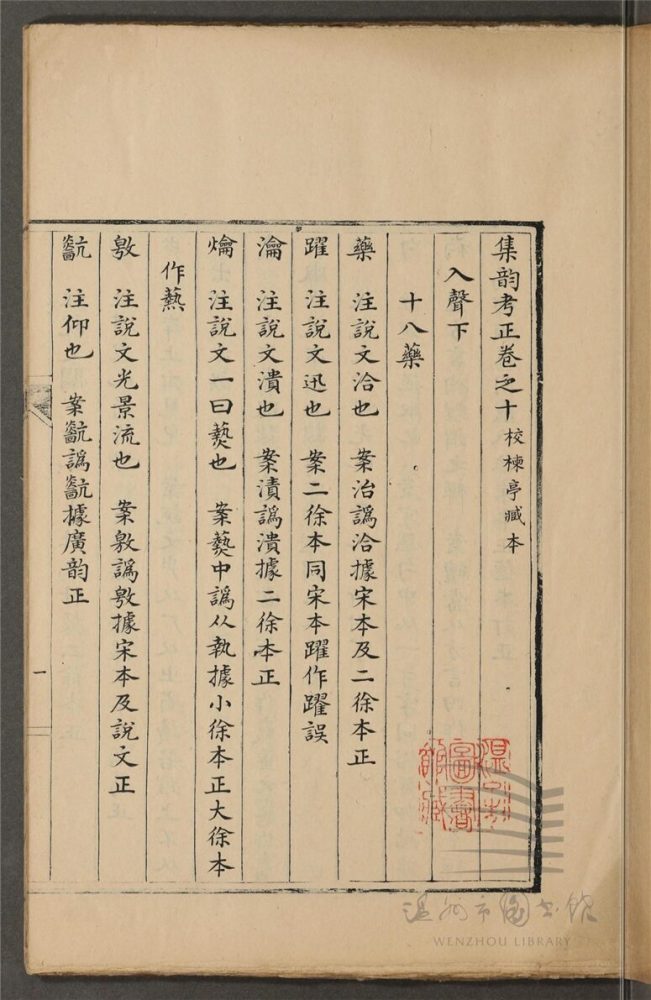 集韵考正卷之十 校楝亭臧本
入聲下
十八藥
藥 注說文治也 案治譌洽據宋本及二徐本正
躍 注說文迅也 案二徐本同宋本躍作躍誤
瀹 注說文潰也 案漬譌潰據二徐本正
爚 注說文一曰爇也 案爇中譌从執據小徐本正大徐本
作爇
敫 注說文光景流也 案敫譌敫據宋本及說文正
注仰也 案 譌 據廣韵正
一
溫州市圖書館藏
溫州市圖書館
WENZHOU LIBRARY